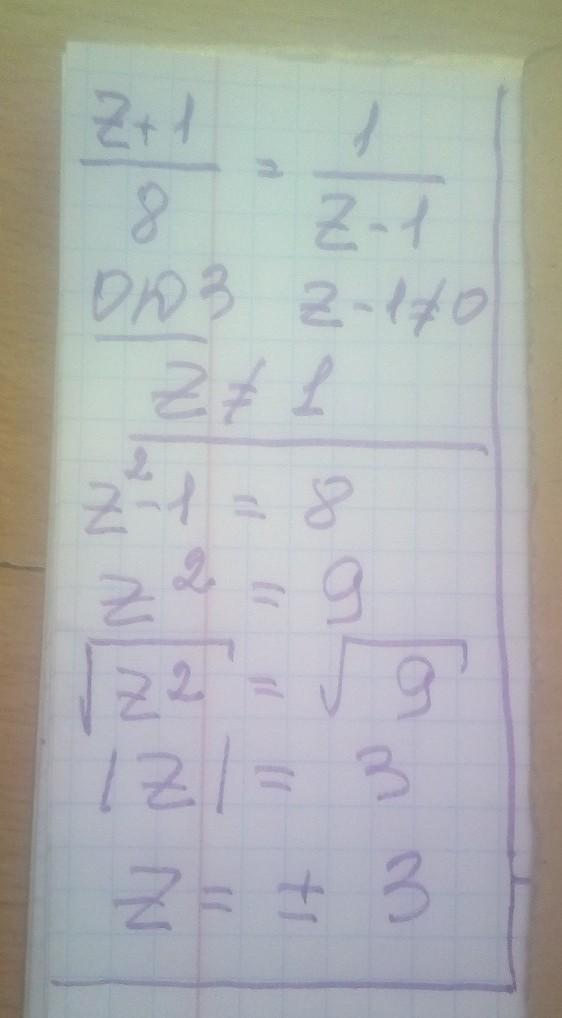 z+1/8 = 1/z-1
ОДЗ z-1≠0
z≠1
z²-1 = 8
z² = 9
√z² = √9
|z| = 3
z = ± 3